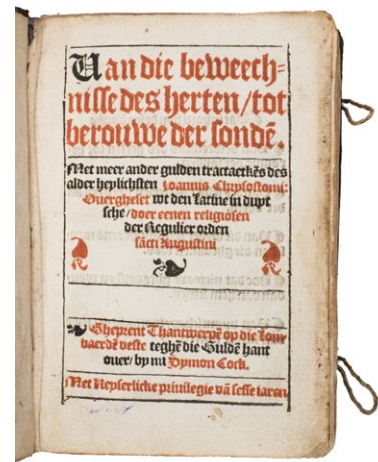 Uan die beweech=
nisse des herten/tot
berouwe der sondē.
Met meer ander gulden tractaetkēs des
alder heylichsten Joannis Chrysostomi:
Ouergheset wt den Latine in duyt
sche/doer eenen religiosen
der Regulier orden
sācti Augustini
Gheprent Thantwerpē op die Lom
baerdē veste teghē die Guldē hant
ouer/by mi Symon Cock.
Met Keyserlicke priuilegie vā sesse iaren